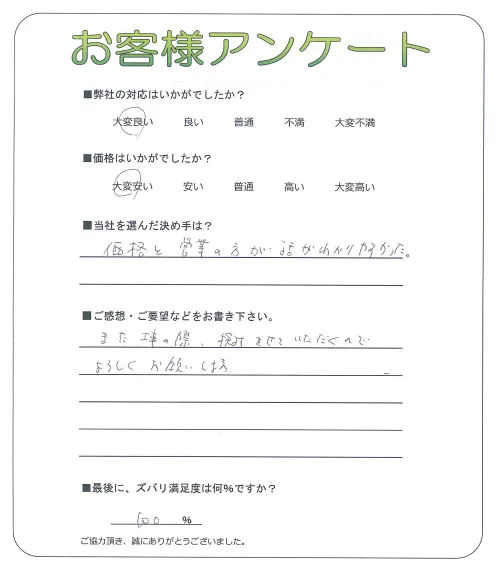 お客様アンケート
■弊社の対応はいかがでしたか？
大変良い 良い 普通 不満 大変不満
■価格はいかがでしたか？
大変安い 安い 普通 高い 大変高い
■当社を選んだ決め手は？
価格と営業の方が話がわかりやすかった。
■ご感想・ご要望などをお書き下さい。
また工事の際、検討させていただくので
よろしくお願いします。
■最後に、ズバリ満足度は何％ですか？
100 ％
ご協力頂き、誠にありがとうございました。